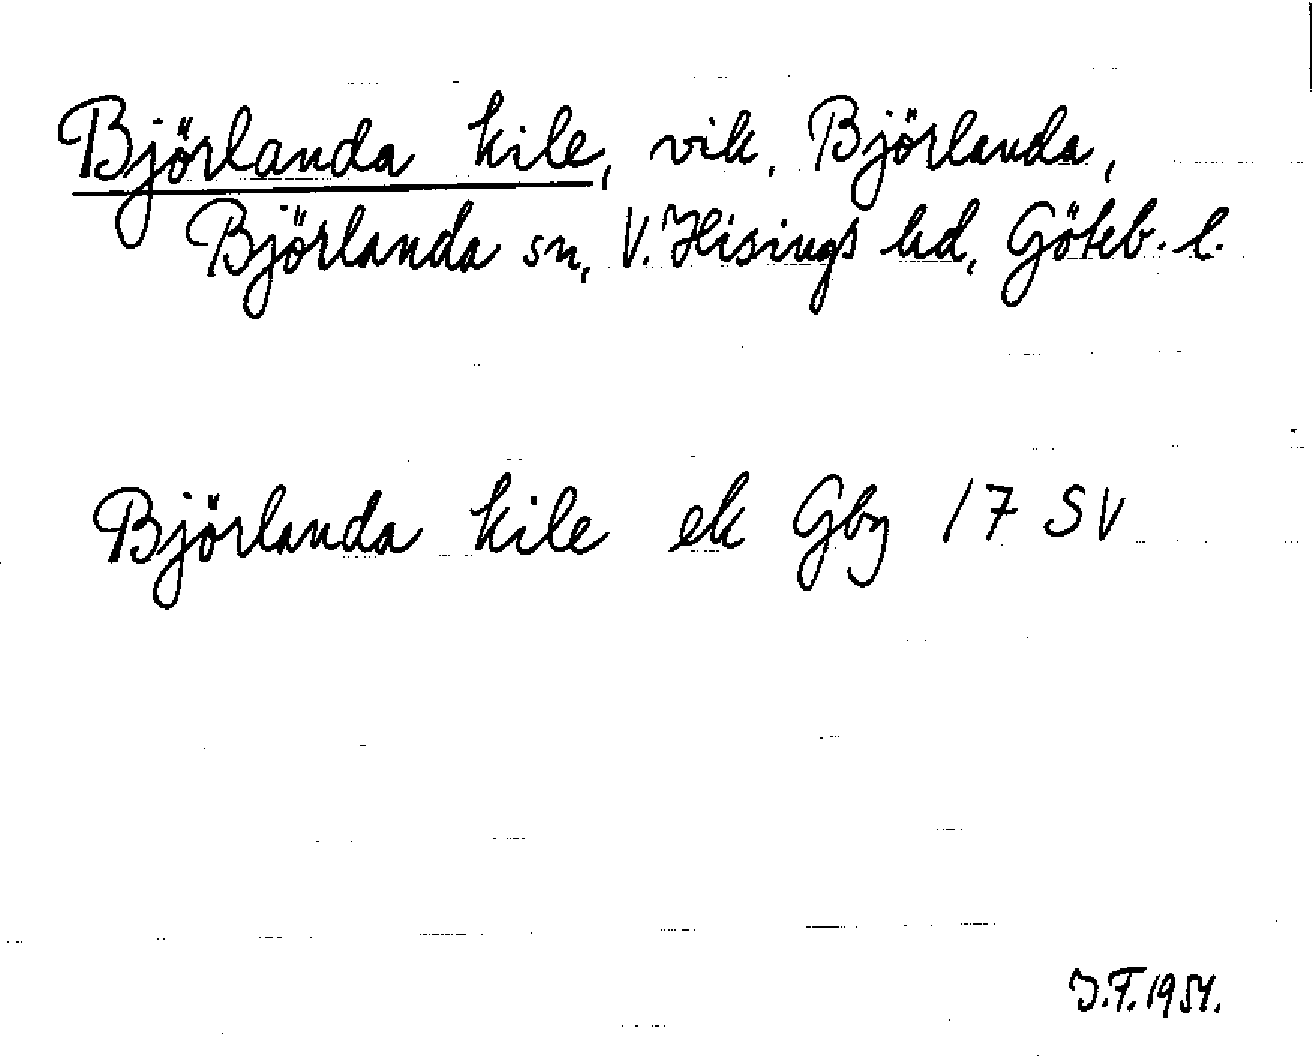 Björlanda kile, vik, Björlanda,
Björlanda sn, V. Hisings hd, Göteb. l.
Björlanda kile ek Gbg 17 SV
J.F. 1954.